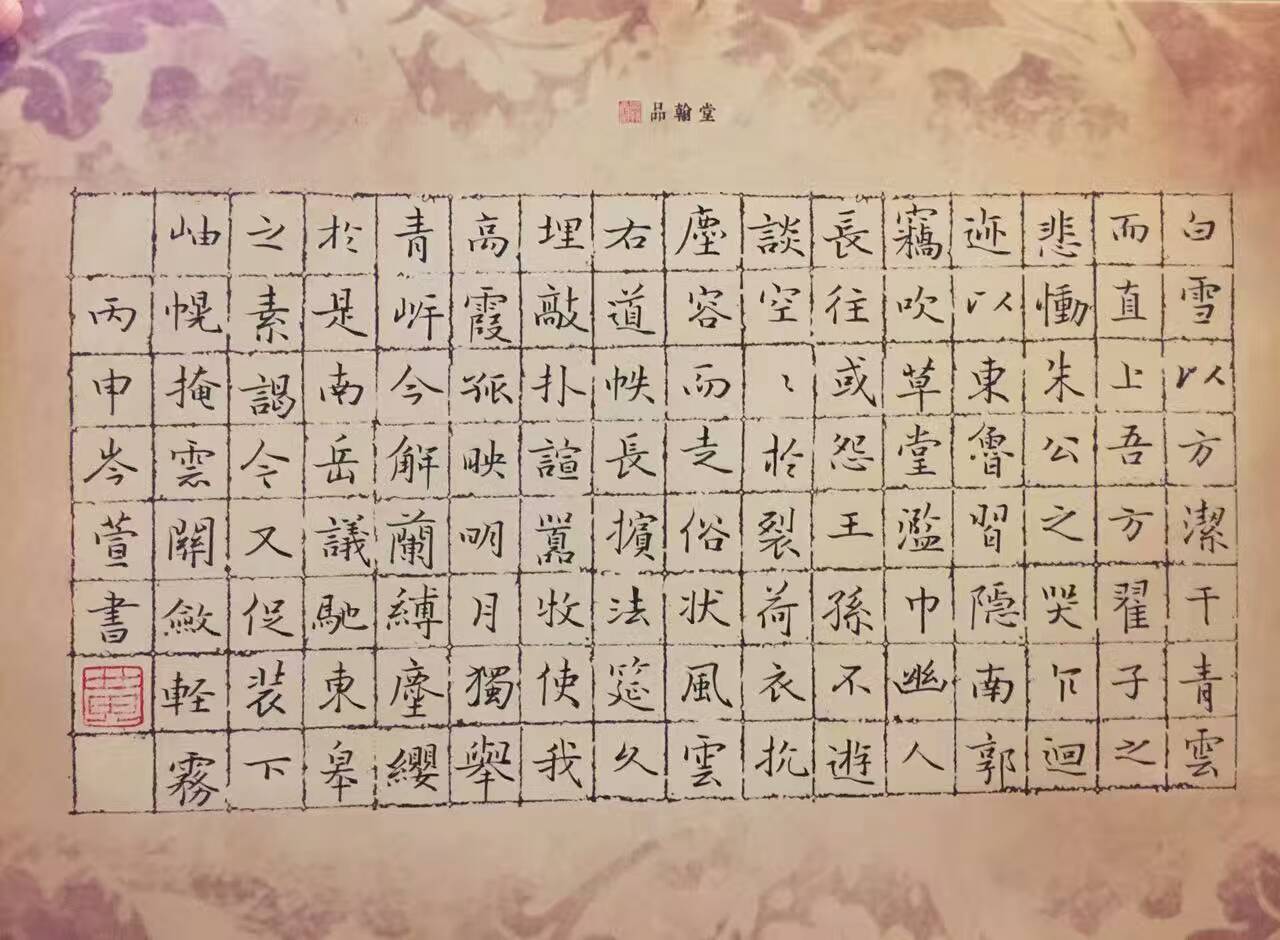 品翰堂
白雪以方潔干青雲
而直上吾方翟子之
悲慟朱公之哭乍迴
迹以東魯習隱南郭
竊吹草堂濫巾幽人
長往或怨王孫不遊
談空〻於裂荷衣抗
塵容而走俗狀風雲
右道帙長擯法筵久
埋敲扑諠囂牧使我
高霞孤映明月獨舉
青今解蘭縛塵纓
於是南岳議馳東皋
之素謁今又促裝下
岫幌掩雲關斂軽霧
丙申岑萱書